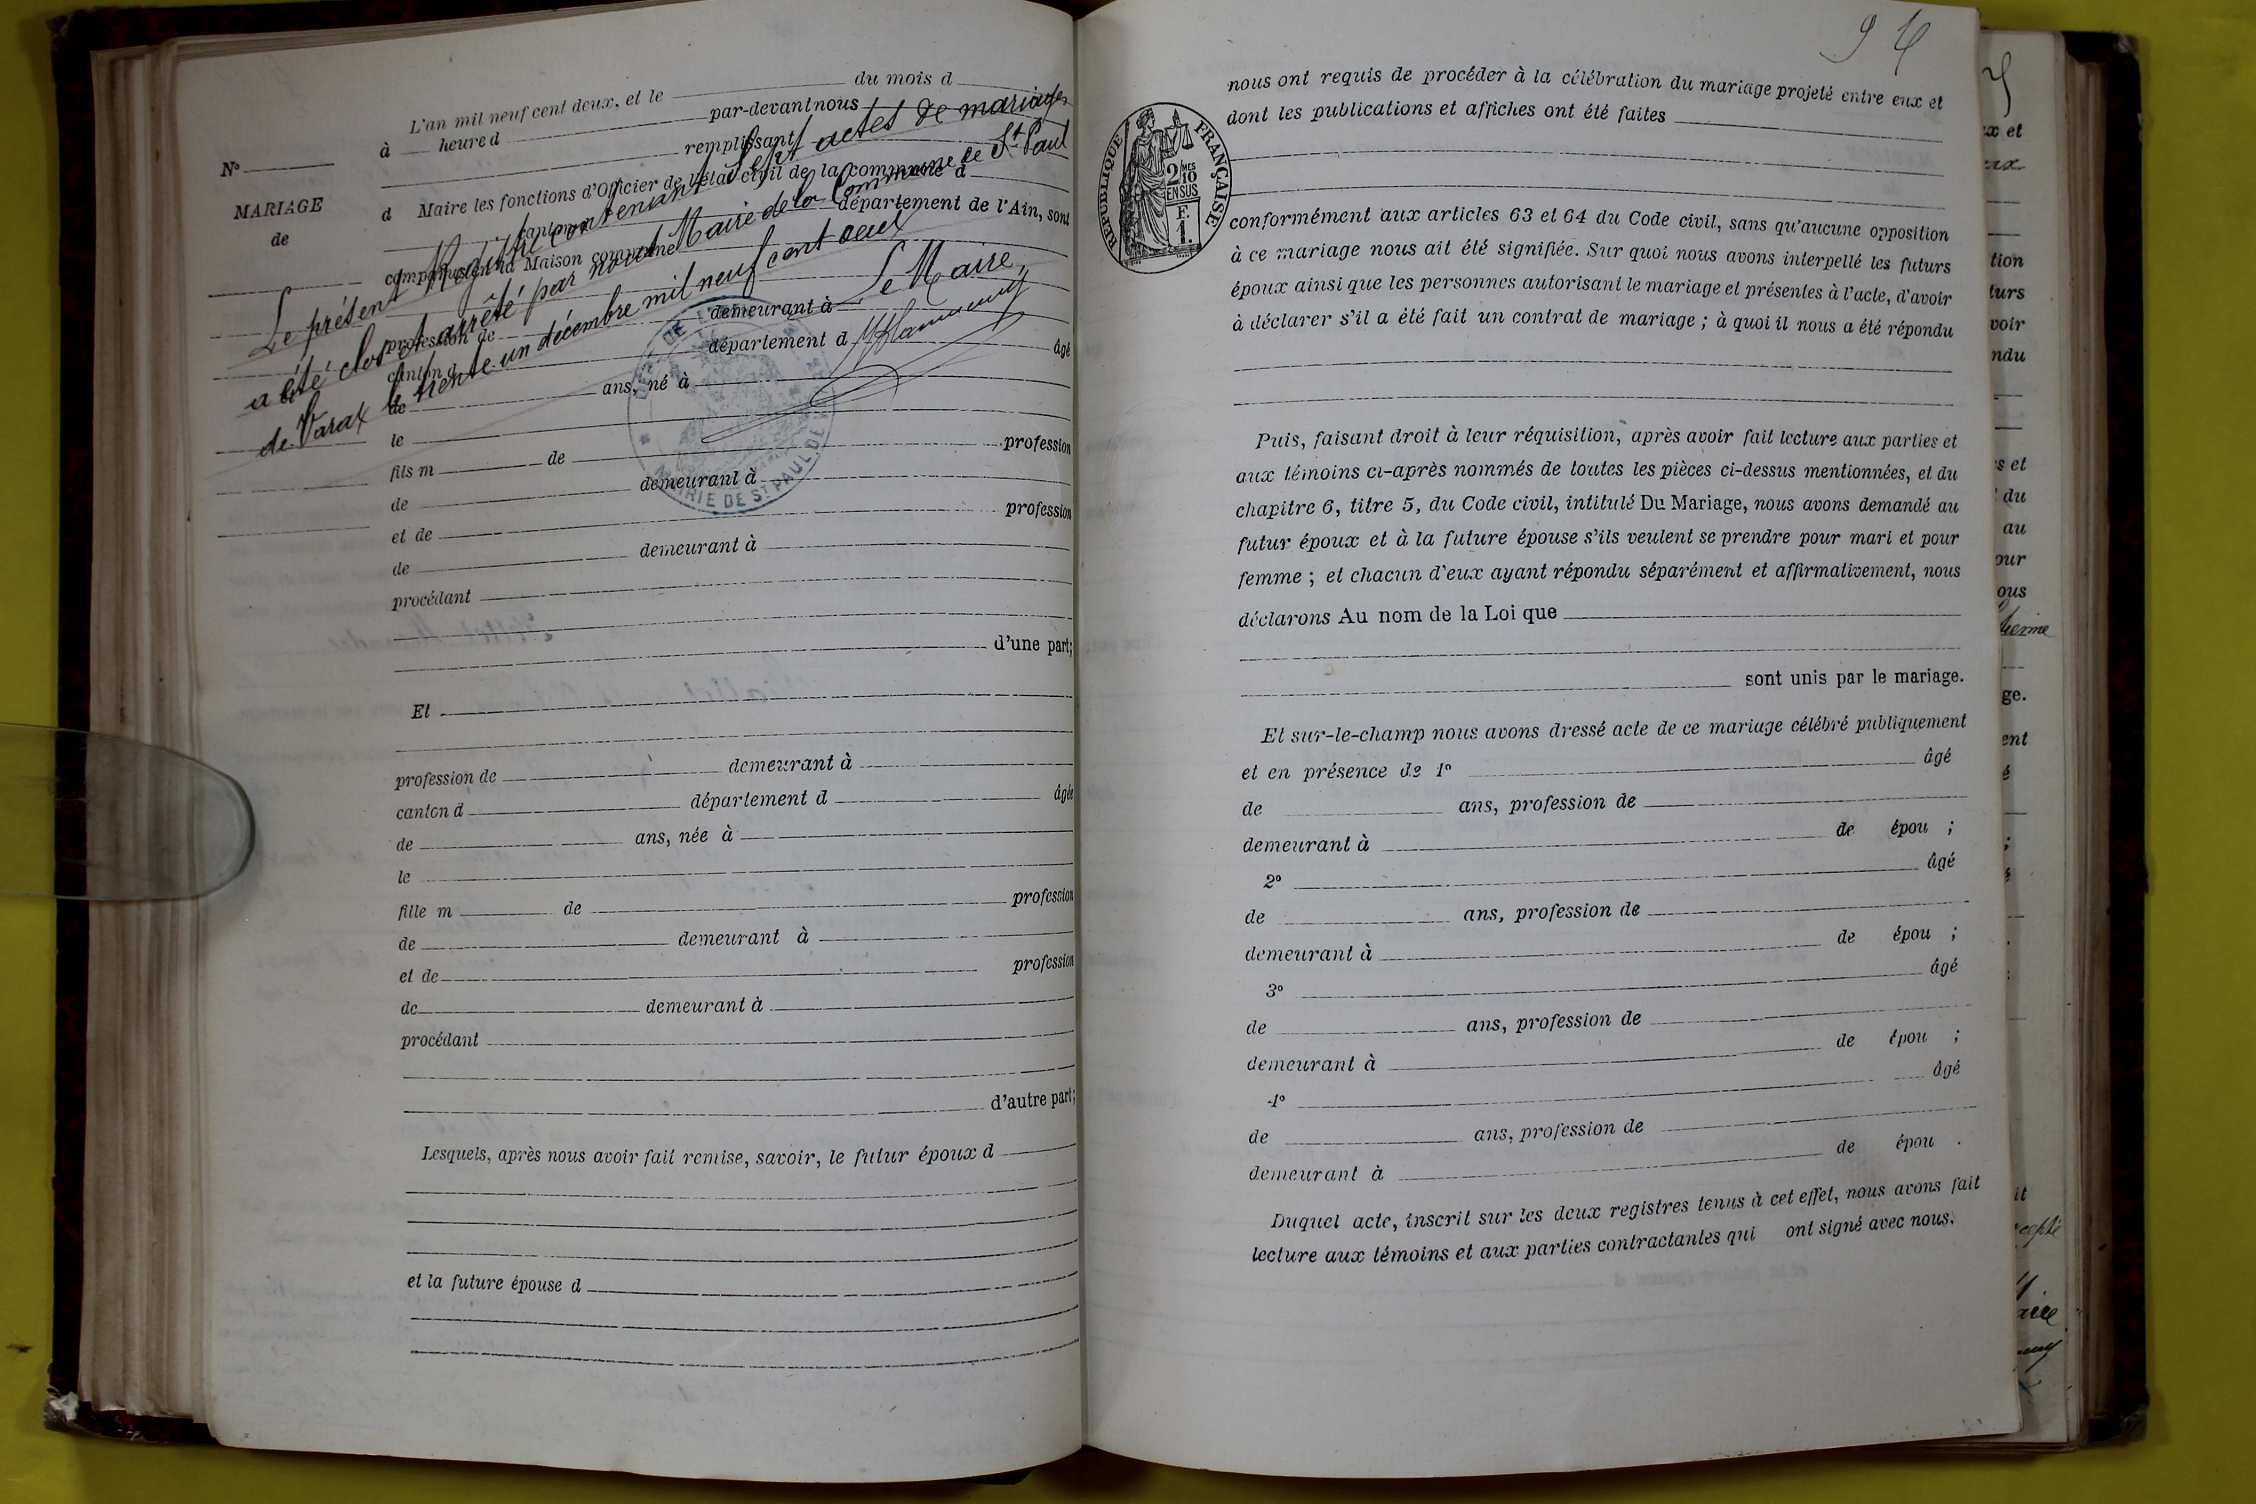 L'an mil neuf cent deux, et le du mois d
à heure d par-devant nous
remplissant
d Maire les fonctions d'Officier de l'état civil de la commune d
canton d département de l'Ain, sont
comparus en la Maison commune
profession de demeurant à
canton d département d âgé
de ans, né à
le
fils m de profession
de demeurant à
et de profession
de demeurant à
procédant
d'une part;
Et
profession de demeurant à
canton d département d âgée
de ans, née à
le
fille m de profession
de demeurant à
et de profession
de demeurant à
procédant
d'autre part;
Lesquels, après nous avoir fait remise, savoir, le futur époux d
et la future épouse d
N°
MARIAGE
de
Le présent Registre contenant sept actes de mariages
a été clos et arrêté par nous Maire de la Commune de St Paul
de Varax le trente un décembre mil neuf cent deux
Le Maire,
MAIRIE DE ST PAUL DE
94
RÉPUBLIQUE FRANÇAISE
2/10MES
EN SUS
F.
1.
nous ont requis de procéder à la célébration du mariage projeté entre eux et
dont les publications et affiches ont été faites
conformément aux articles 63 et 64 du Code civil, sans qu'aucune opposition
à ce mariage nous ait été signifiée. Sur quoi nous avons interpellé les futurs
époux ainsi que les personnes autorisant le mariage et présentes à l'acte, d'avoir
à déclarer s'il a été fait un contrat de mariage ; à quoi il nous a été répondu
Puis, faisant droit à leur réquisition, après avoir fait lecture aux parties et
aux témoins ci-après nommés de toutes les pièces ci-dessus mentionnées, et du
chapitre 6, titre 5, du Code civil, intitulé Du Mariage, nous avons demandé au
futur époux et à la future épouse s'ils veulent se prendre pour mari et pour
femme ; et chacun d'eux ayant répondu séparément et affirmativement, nous
déclarons Au nom de la Loi que
sont unis par le mariage.
Et sur-le-champ nous avons dressé acte de ce mariage célébré publiquement
et en présence de 1° âgé
de ans, profession de
demeurant à de épou ;
2° âgé
de ans, profession de
demeurant à de épou ;
3° âgé
de ans, profession de
demeurant à de épou ;
4° âgé
de ans, profession de
demeurant à de épou .
Duquel acte, inscrit sur les deux registres tenus à cet effet, nous avons fait
lecture aux témoins et aux parties contractantes qui ont signé avec nous.